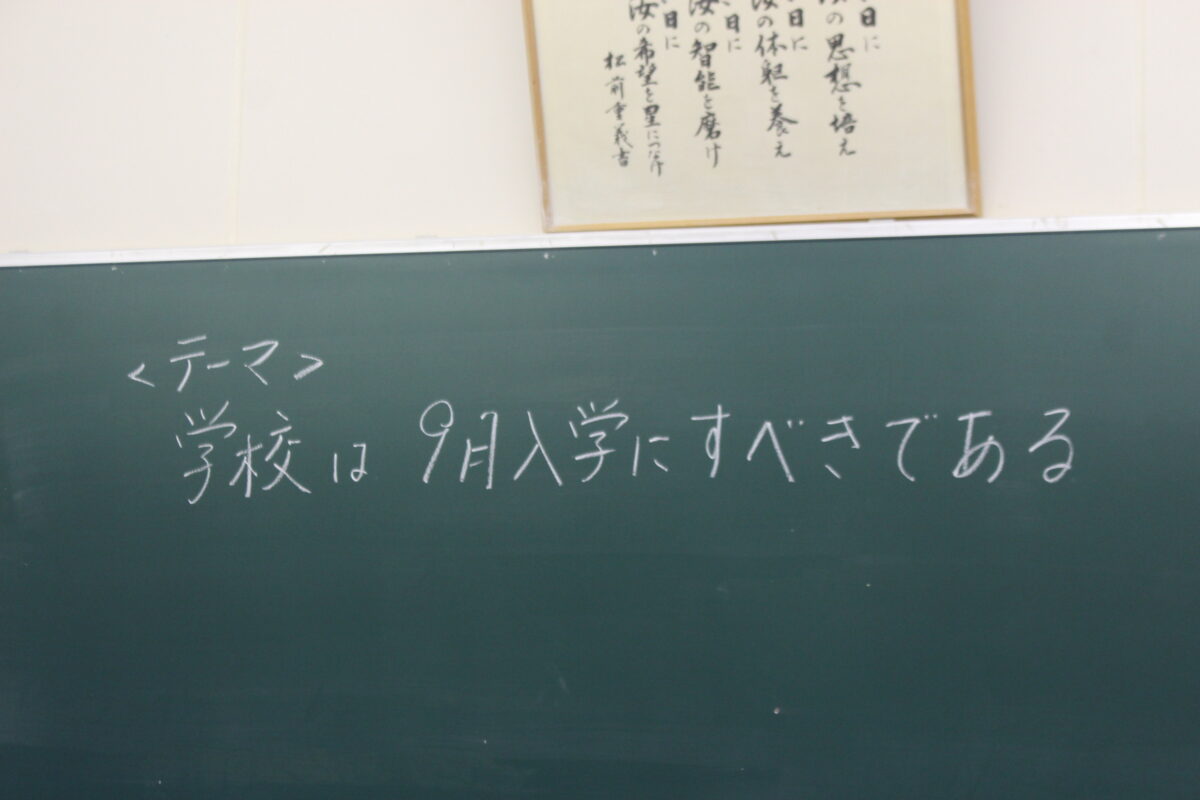 日に
の思想を培え
日に
汝の体躯を養え
日に
汝の智能を磨け
日に
汝の希望を星につなげ
松前重義書
<テーマ>
学校は 9月入学にすべきである